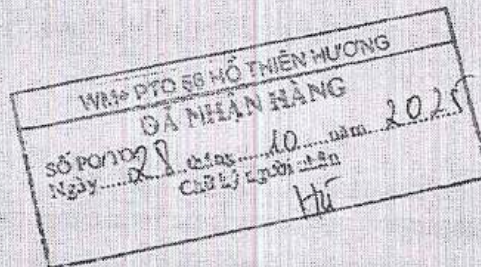 WM+ PTO 56 HỒ THIÊN HƯƠNG
ĐÃ NHẬN HÀNG
SỐ PO/TO?
Ngày 28 tháng 10 năm 2025
Chữ ký người nhận
Hú